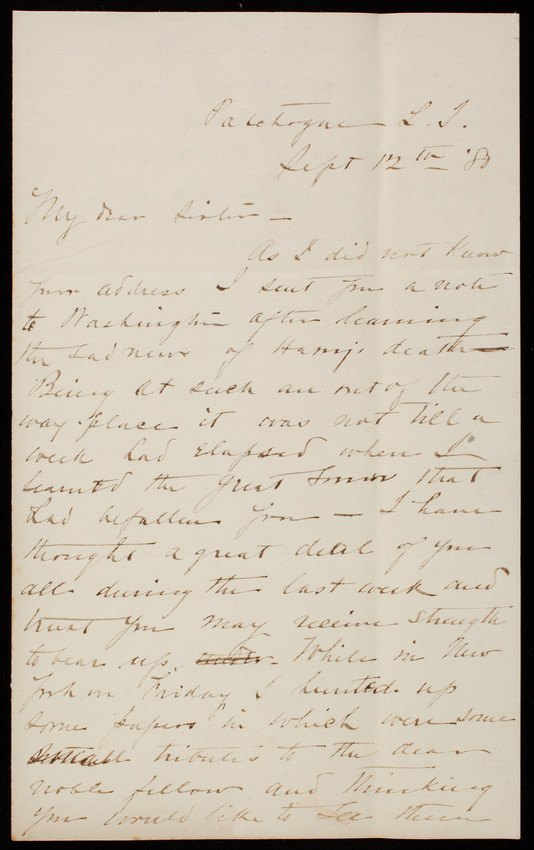 Patchogue L. I.
Sept 12th '80
My dear Sister—
As I did not know
your address I sent you a note
to Washington after learning
the sad news of Harry's death—
Being at such an out of the
way place it was not till a
week had elapsed when I
learned the great sorrow that
had befallen you — I have
thought a great deal of you
all during the last week and
trust you may receive strength
to bear up. While in New
York on Friday I hunted up
some papers in which were some
tributes to the dear
noble fellow and thinking
you would like to see them